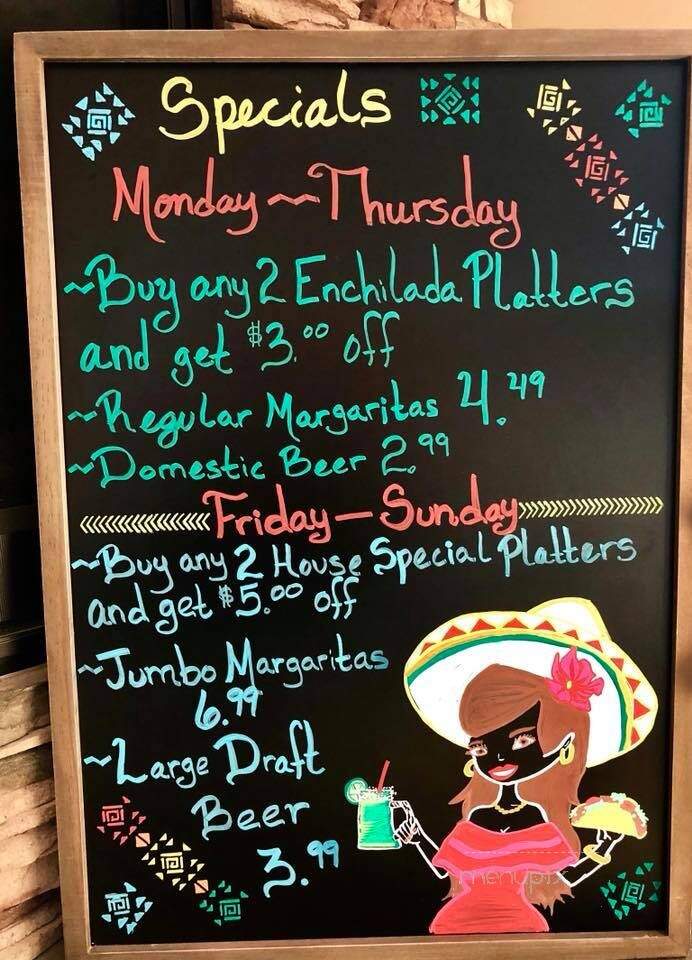 Specials
Monday ~ Thursday
~Buy any 2 Enchilada Platters
and get $3.00 off
~Regular Margaritas 4.49
~Domestic Beer 2.99
Friday — Sunday
~Buy any 2 House Special Platters
and get $5.00 off
~Jumbo Margaritas
6.99
~Large Draft
Beer
3.99
menupix